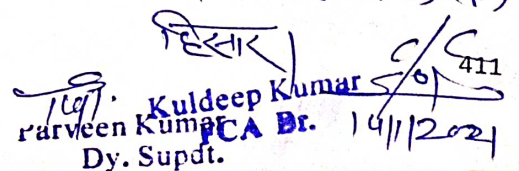 हिसार
411
Kuldeep Kumar
Parveen Kumar
PCA Br.
14/1/2021
Dy. Supdt.